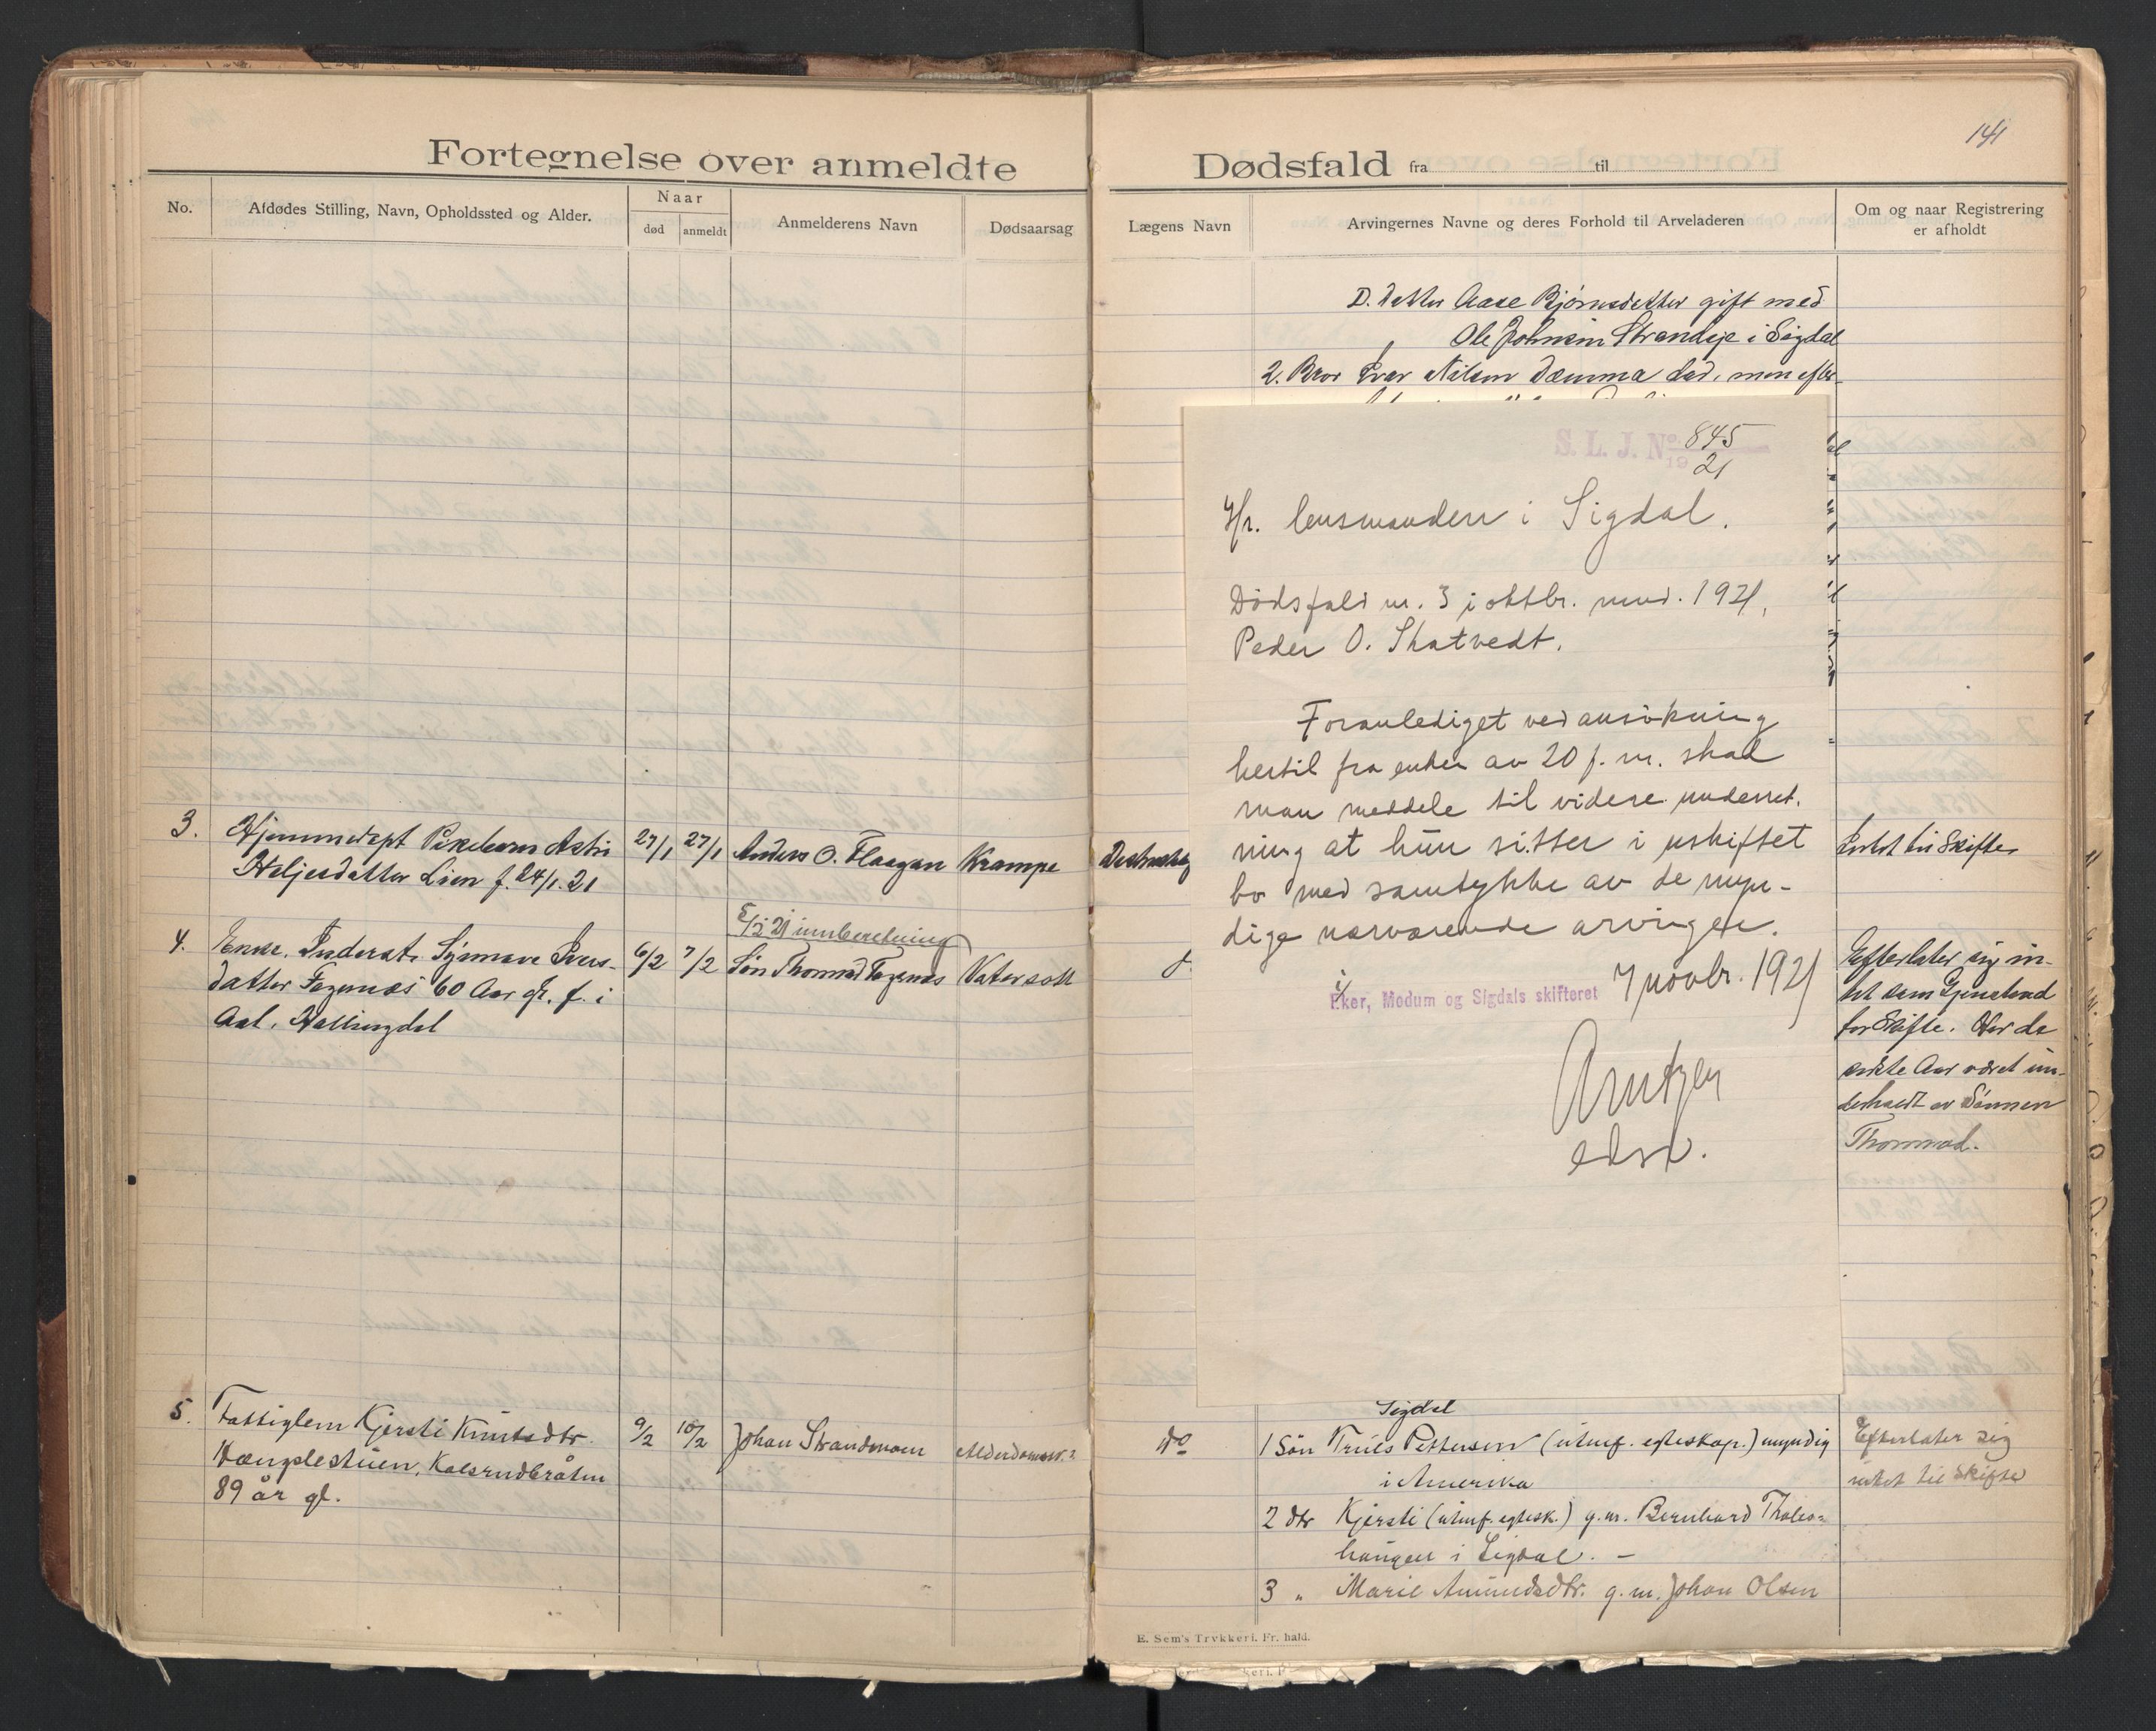 141
Fortegnelse over anmeldte Dødsfald fra til
No.
Afdødes Stilling, Navn, Opholdssted og Alder.
Naar
død
anmeldt
Anmelderens Navn
Dødsaarsag
Lægens Navn
Arvingernes Navne og deres Forhold til Arveladeren
Om og naar Registrering
er afholdt
3. Hjemmedøpt Pikebarn Astri
Heljesdatter Lien f. 24/1. 21
27/1 27/1 Anders O. Flaagan Krampe
4. Enke, Inderst. Synnøve Ivers-
datter Fagernæs 60 Aar gl. f. i
Aal, Hallingdal
6/2 7/2
5/12 21 innberetning
Søn Thomas Fagernæs Vatersott
5. Fattiglem Kjersti Knutsdtr.
89 år gl.
9/2 10/2 Johan Strandmoen Alderdomssv.
D. datter Aase Bjørnsdatter gift med
Ole Johnsen i Sigdal
2. Bror Ivar Nilsen Damma død, men efter-
Intet til Skifte
Efterlater sig in-
tet som Gjenstand
for Skifte. Har de
sidste Aar været un-
derholdt av Sønnen
Thomas.
S. L. J. No 845
19 21
Hr. lensmanden i Sigdal.
Dødsfald nr. 3 i oktbr. mnd. 1921,
Peder O. Skatvedt.
Foranlediget ved ansökning
hertil fra enken av 20 f. m. skal
man meddele til videre underret-
ning at hun sitter i uskiftet
bo med samtykke av de myn-
dige nærværende arvinger.
Eker, Modum og Sigdals skifteret 7 novbr. 1921
Arntzen
edsv.
Sigdal
do
1 Søn Truls Pettersen (utenf. egteskap.) myndig
i Amerika
2 dtr Kjersti (utenf. egtesk.) g.m. Bernhard Thales-
haugen i Sigdal. –
3 " Marie Amundsdtr. g.m. Johan Olsen
Efterlater sig
intet til Skifte
E. Sem's Trykkeri. Fr. hald.